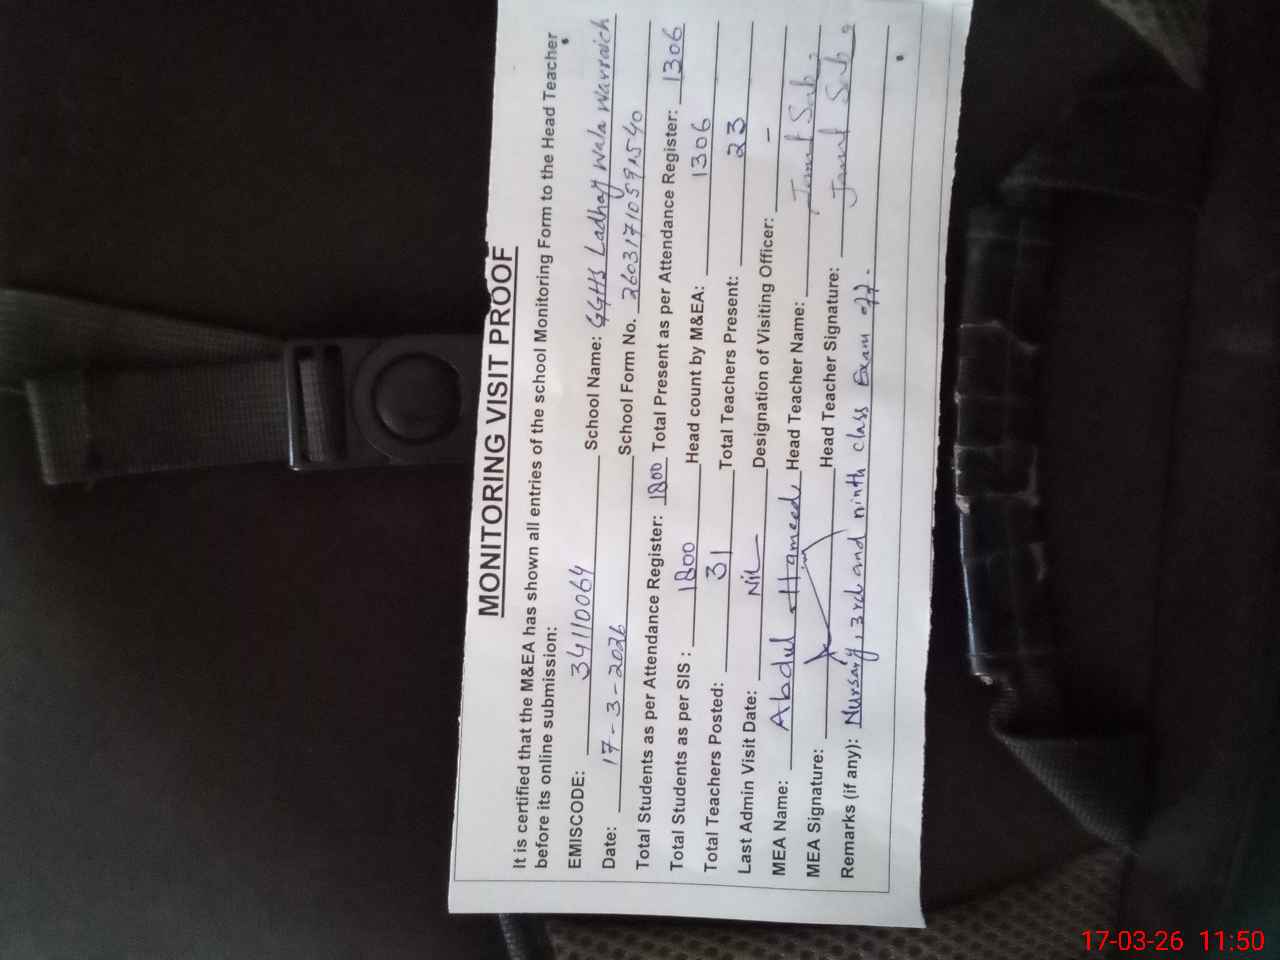 MONITORING VISIT PROOF
It is certified that the M&EA has shown all entries of the school Monitoring Form to the Head Teacher
before its online submission:
EMISCODE: 34110064 School Name: GGHS Ladhay Wala Warraich
Date: 17-3-2026 School Form No.
Total Students as per Attendance Register: 1800 Total Present as per Attendance Register: 1306
Total Students as per SIS : 1800 Head count by M&EA: 1306
Total Teachers Posted: 31 Total Teachers Present: 23
Last Admin Visit Date: Nil Designation of Visiting Officer: -
MEA Name: Abdul Hameed Head Teacher Name:
MEA Signature: Head Teacher Signature:
Remarks (if any): Nursary, 3rd and ninth class Exam off.
17-03-26 11:50